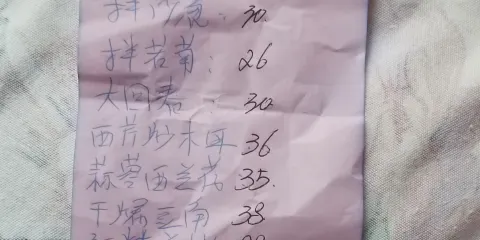 拌沙[?]: 30.
拌苦菊: 26
大回春: 30
西芹炒木耳 36
蒜蓉西兰花 35.
干煸豆角 38